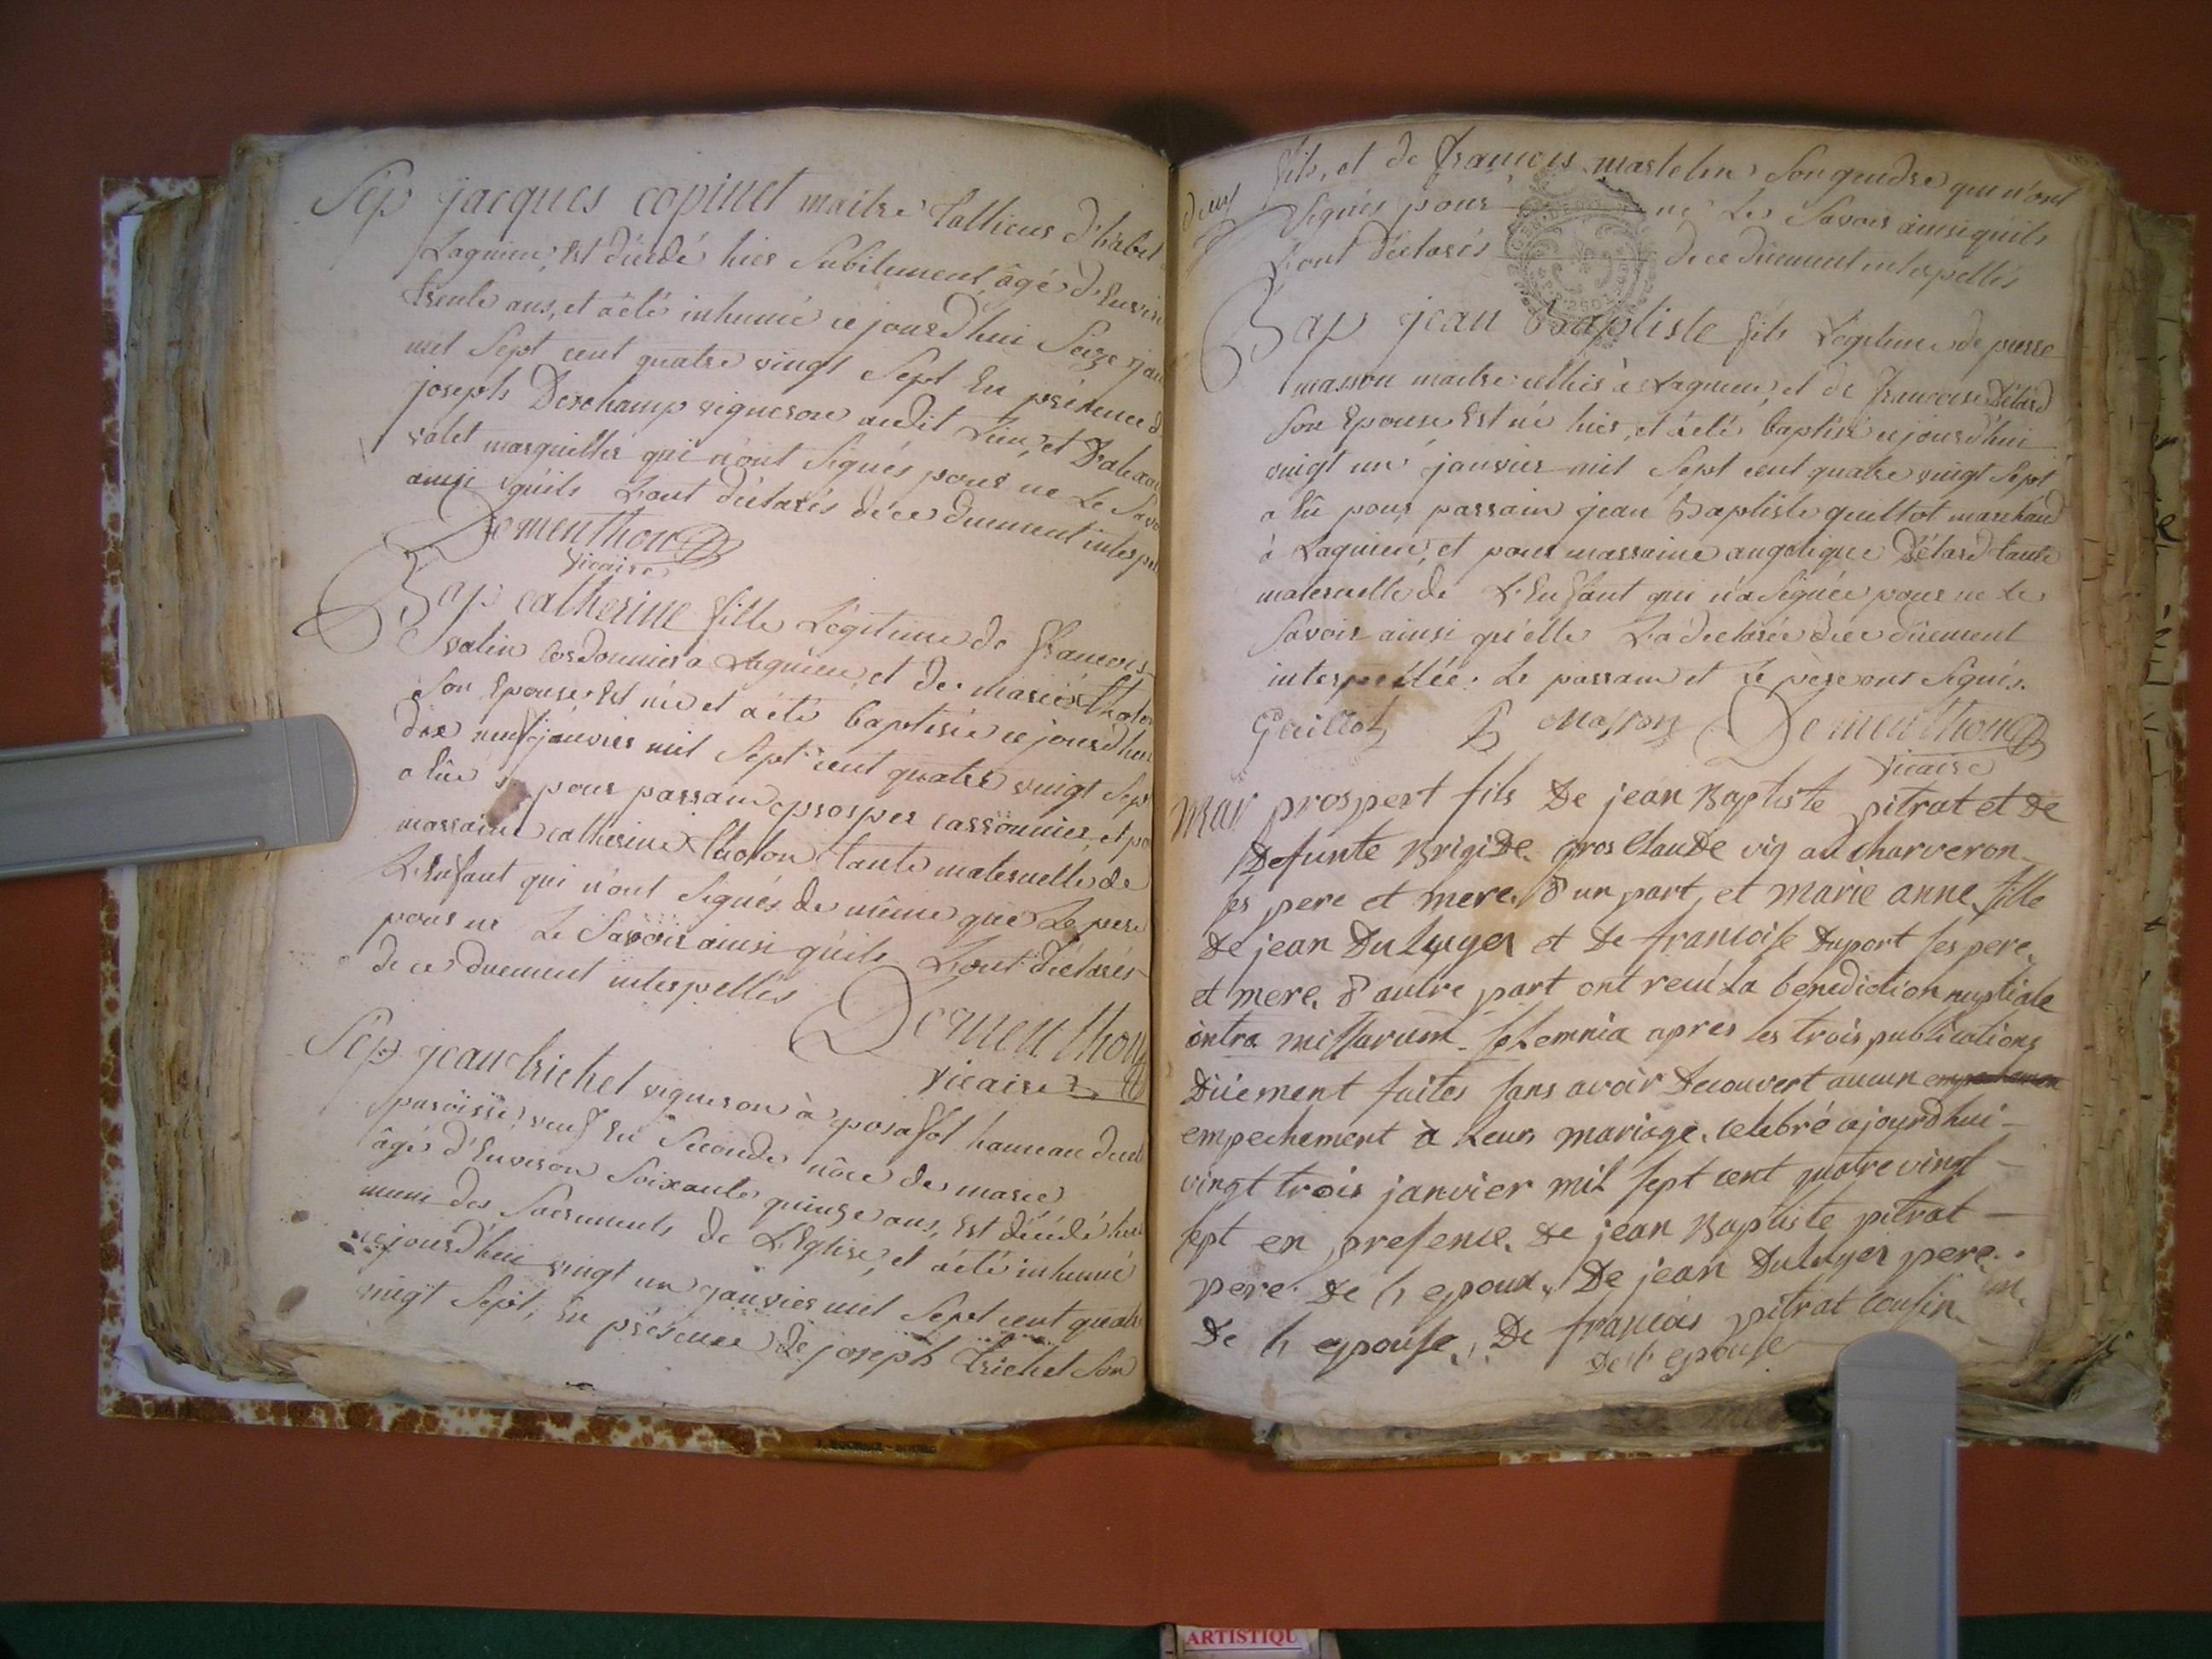 Sep jacques copinet maitre Tallieur d'habit
Lagnieu, Est décédé hier Subitement, âgé d'Envir
trente ans, et a été inhumé ce jourd'hui Seize jan
mil Sept cent quatre vingt Sept En présence d
joseph Deschamp vigneron audit Lieu, et
valet marguillier qui n'ont Signés pour ne Le Savo
ainsi qu'ils L'ont déclarés de ce duement interpe
Dementhon
vicaire
Bap catherine fille Légitime de francois
valin Cordonnier à Lagnieu, et de marie tholon
Son Epouse Est née et a été baptisée ce jourd'hui
dix neuf janvier mil Sept cent quatre vingt Sept
a Eüe pour parrain prosper cassonnier, et po
marraine catherine tholon tante maternelle de
L'Enfant qui n'ont Signés de même que Le pere
pour ne Le Savoir ainsi qu'ils L'ont déclarés
de ce duement interpellés
Dementhon
vicaire
Sep jean trichet vigneron à posafol hameau de ce
paroisse, veuf En Seconde nôce de marie
âgé d'Environ Soixante quinze ans, Est décédé hier
muni des Sacrements de L'Eglise, et a été inhumé
cejourd'hui vingt un janvier mil Sept cent quatre
vingt Sept, En présence de joseph trichet Son
fils, et de francois martelin Son gendre qui n'ont
deux
Signés pour ne Le Savoir ainsi qu'ils
L'ont déclarés de ce duement interpellés
Bap jean Baptiste fils Légitime de pierre
masson maitre cellier à Lagnieu, et de francoise Détard
Son Epouse Est né hier, et a été baptisé ce jourd'hui
vingt un janvier mil Sept cent quatre vingt Sept
a Eû pour parrain jean Baptiste guillot marchand
à Lagnieu, et pour marraine angelique Détard tante
maternelle de L'Enfant qui n'a Signée pour ne Le
Savoir ainsi qu'elle L'a declarée de ce düement
interpellée. Le parrain et Le père ont Signés.
Guillot P Masson Dementhon
vicaire
Mar prospert fils De jean Baptiste pitrat et de
Defunte Brigide gros Claude vig au charveron
ses pere et mere d'un part, et marie anne fille
De jean Duluyer et De francoise Duport ses pere
et mere, d'autre part ont recu La benediction nuptiale
intra missarum solemnia apres Les trois publications
Düement faites sans avoir Decouvert aucun empechemen
empechement à Leur mariage, celebré cejourdhui
vingt trois janvier mil sept cent quatre vingt
sept en presence De jean Baptiste pitrat
pere De l'epoux, De jean Duluyer pere
De l'epouse, De francois pitrat cousin
De l'epouse
ARTISTIQU